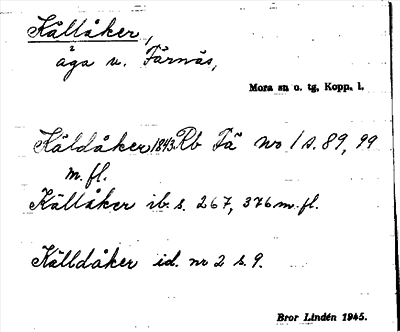 Källåker,
äga v. Färnäs,
Mora sn o. tg, Kopp. l.
Käldåker 1843 Rb Fä no 1 s. 89, 99
m.fl.
Källåker ib. s. 267, 376 m.fl.
Källdåker id. nr 2 s. 9.
Bror Lindén 1945.